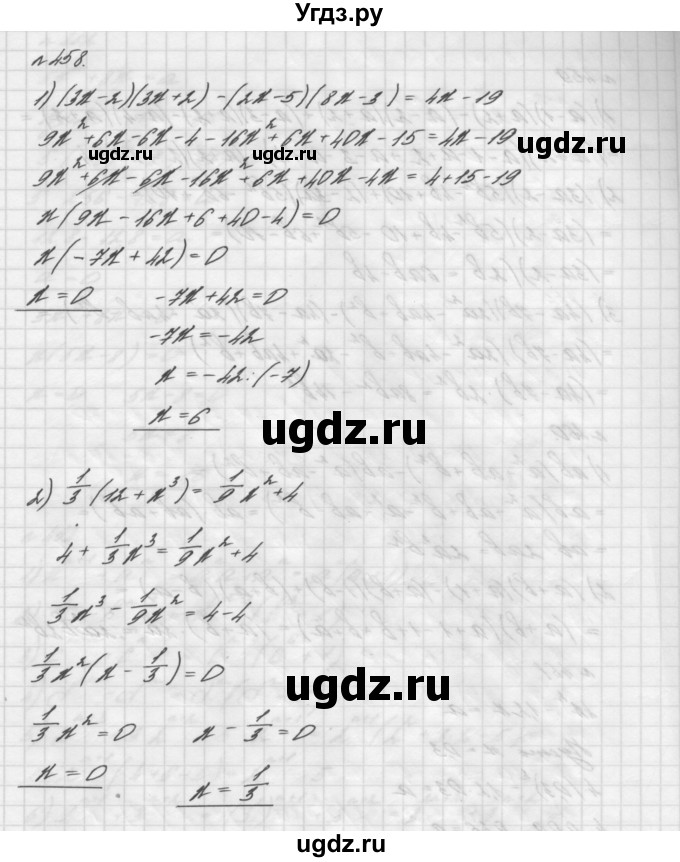 Угдз.ру
n 458.
1) (3x-2)(3x+2) - (2x-5)(8x-3) = 4x - 19
9x² + 6x - 6x - 4 - 16x² + 6x + 40x - 15 = 4x - 19
ugdz.ru ugdz.ru ugdz.ru
9x² + 6x - 6x - 16x² + 6x + 40x - 4x = 4 + 15 - 19
x(9x - 16x + 6 + 40 - 4) = 0
x(-7x + 42) = 0
x = 0 -7x + 42 = 0
-7x = -42
x = -42 : (-7)
x = 6
ugdz.ru
2) 1/3 (12 + x³) = 1/9 x² + 4
4 + 1/3 x³ = 1/9 x² + 4
ugdz.ru
1/3 x³ - 1/9 x² = 4 - 4
1/3 x² (x - 1/3) = 0
ugdz.ru
1/3 x² = 0 x - 1/3 = 0
x = 0 x = 1/3
ugdz.ru
ugdz.ru